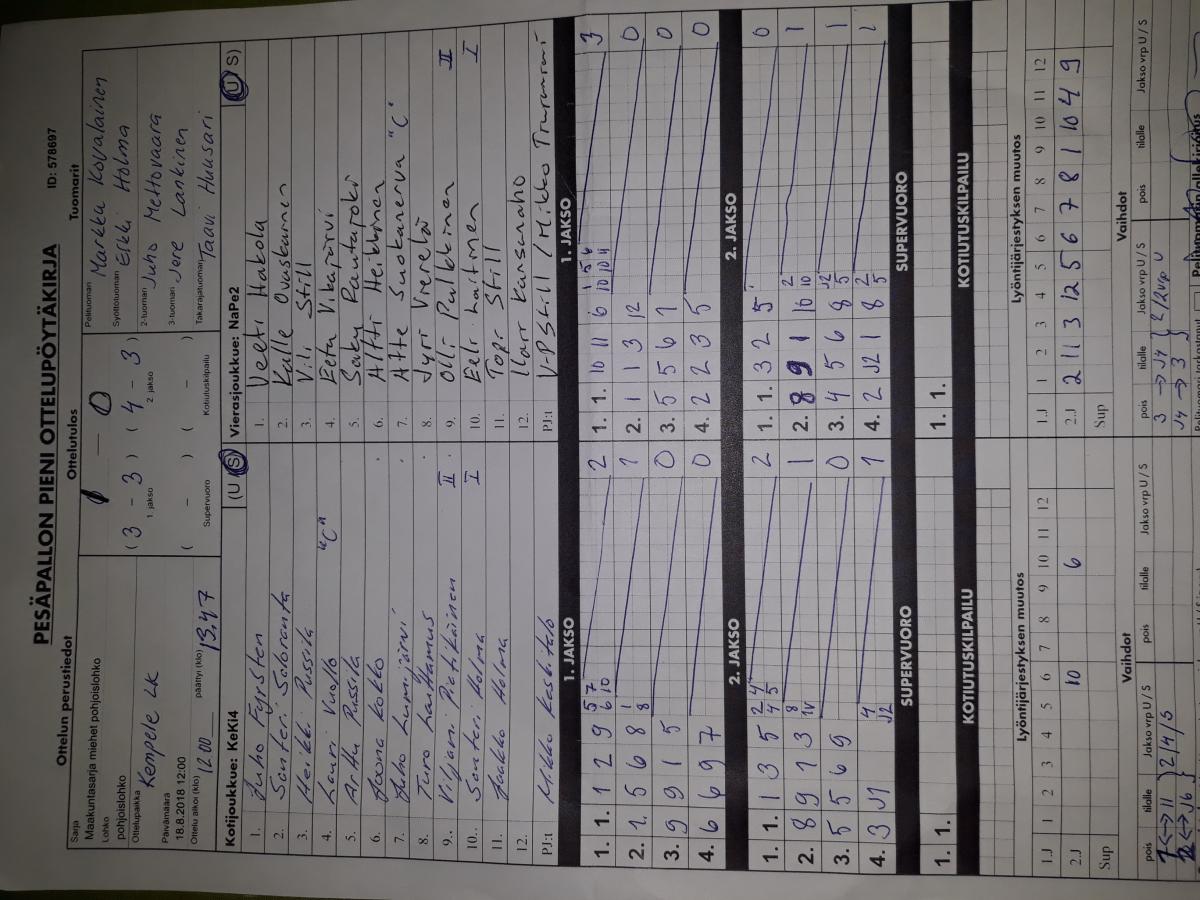 PESÄPALLON PIENI OTTELUPÖYTÄKIRJA
ID: 578697
Ottelun perustiedot
Sarja
Maakuntasarja miehet pohjoislohko
Lohko
pohjoislohko
Ottelupaikka
Kempele LK
Päivämäärä
18.8.2018 12:00
Ottelu alkoi (klo) 1200 päättyi (klo) 13,47
Ottelutulos
1 — 0
( 3 - 3 ) ( 4 - 3 )
1. jakso 2. jakso
( - ) ( - )
Supervuoro Kotiutuskilpailu
Tuomarit
Pelituomari Markku Kovalainen
Syöttötuomari Erkki Holma
2-tuomari Juho Mettovaara
3-tuomari Jere Lankinen
Takarajatuomari Taavi Huusari
Kotijoukkue: KeKi4 (U S)
1. Juho Fyrsten
2. Santeri Saloranta
3. Heikki Pussila
4. Lauri Vuolto "C"
5. Arttu Pussila
6. Joona Kokko
7. Juho Lumijärvi
8. Turo Lauttamus
9. Viljami Pietikäinen II
10. Santeri Holma I
11. Jaakko Holma
12.
PJ:t Mikko Keskitalo
Vierasjoukkue: NaPe2 (U S)
1. Veeti Hakola
2. Kalle Ovaskainen
3. Vili Still
4. Eetu Vikajärvi
5. Saky Rautaproki
6. Altti Heikkinen
7. Atte Suokanerva "C"
8. Jyri Vierelä
9. Olli Pulkkinen II
10. Eeli Laitinen I
11. Topi Still
12. Ilari Kansanaho
PJ:t V-P Still / Mikko Turunen
1. JAKSO
1. 1. 1 2 9 5 6 7 10 2
2. 1 5 6 8 1 8 1
3. 9 9 1 5 0
4. 6 6 9 7 0
1. JAKSO
1. 1. 10 11 6 1 6 5 10 6 10 11 3
2. 1 1 3 12 0
3. 5 5 6 1 0
4. 2 2 3 5 0
2. JAKSO
1. 1. 1 3 5 2 4 4 5 2
2. 8 9 1 3 8 1V 1
3. 5 5 6 9 0
4. 3 J1 4 J2 1
2. JAKSO
1. 1. 3 2 5 0
2. 8 9 1 10 2 10 1
3. 4 5 6 8 J2 5 1
4. 2 J2 1 8 2 5 1
SUPERVUORO
1. 1.
SUPERVUORO
1. 1.
KOTIUTUSKILPAILU
KOTIUTUSKILPAILU
Lyöntijärjestyksen muutos
1.J 1 2 3 4 5 6 7 8 9 10 11 12
2.J 10 6
Sup
Lyöntijärjestyksen muutos
1.J 1 2 3 4 5 6 7 8 9 10 11 12
2.J 2 11 3 12 5 6 7 8 1 10 4 9
Sup
Vaihdot
pois tilalle Jakso vrp U / S pois tilalle Jakso vrp U / S
1 <-> 11 } 2/4/S
Vaihdot
pois tilalle Jakso vrp U / S pois tilalle Jakso vrp U / S
3 -> J4 } 2/2vrp U
J4 -> 3